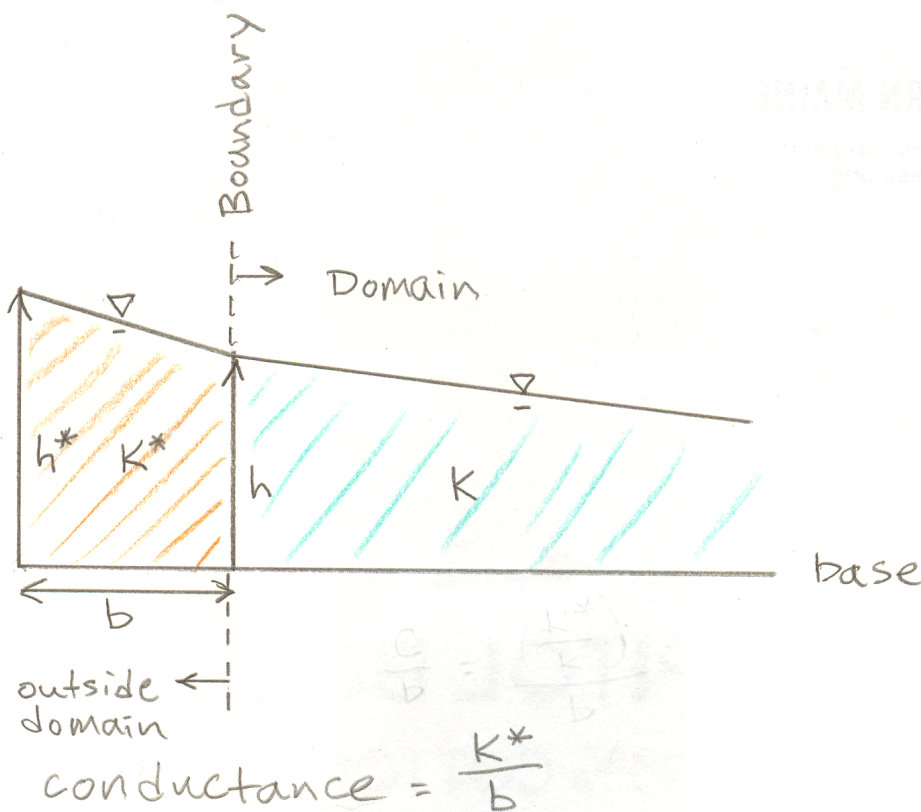 Boundary
Domain
h*
K*
h
K
base
b
outside
domain
C/b = (K*/K)/b
conductance = K*/b